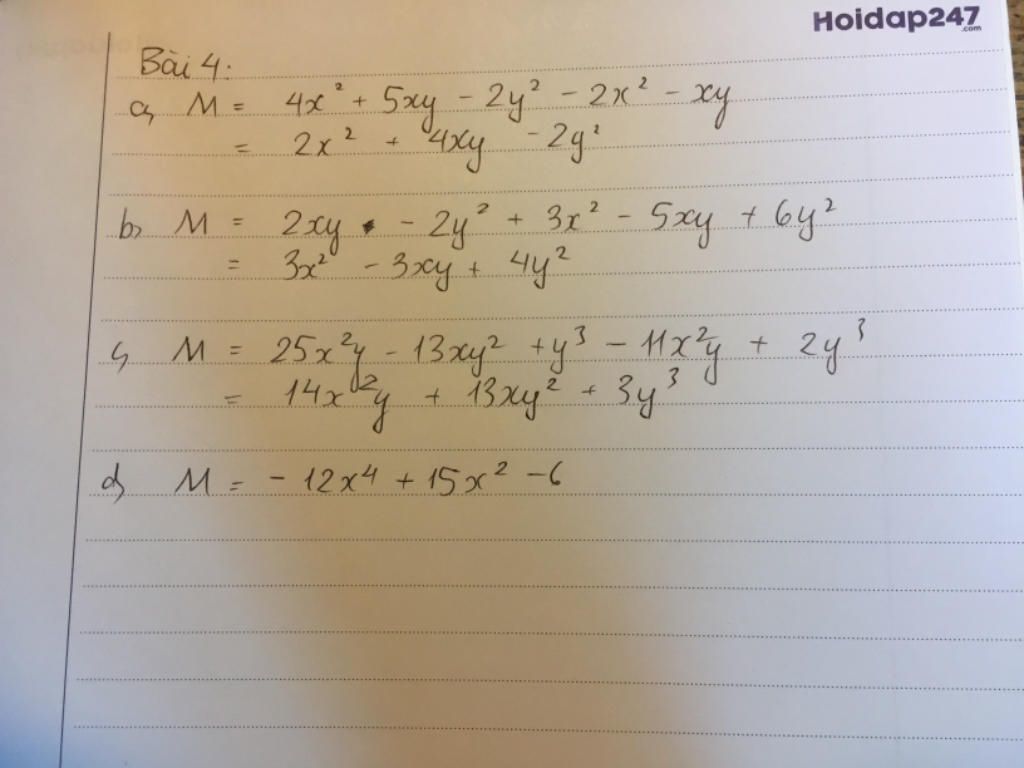 Hoidap247
.com
Bài 4:
a, M = 4x² + 5xy - 2y² - 2x² - xy
= 2x² + 4xy - 2y²
b, M = 2xy - 2y² + 3x² - 5xy + 6y²
= 3x² - 3xy + 4y²
c, M = 25x²y - 13xy² + y³ - 11x²y + 2y³
= 14x²y + 13xy² + 3y³
d, M = - 12x⁴ + 15x² - 6